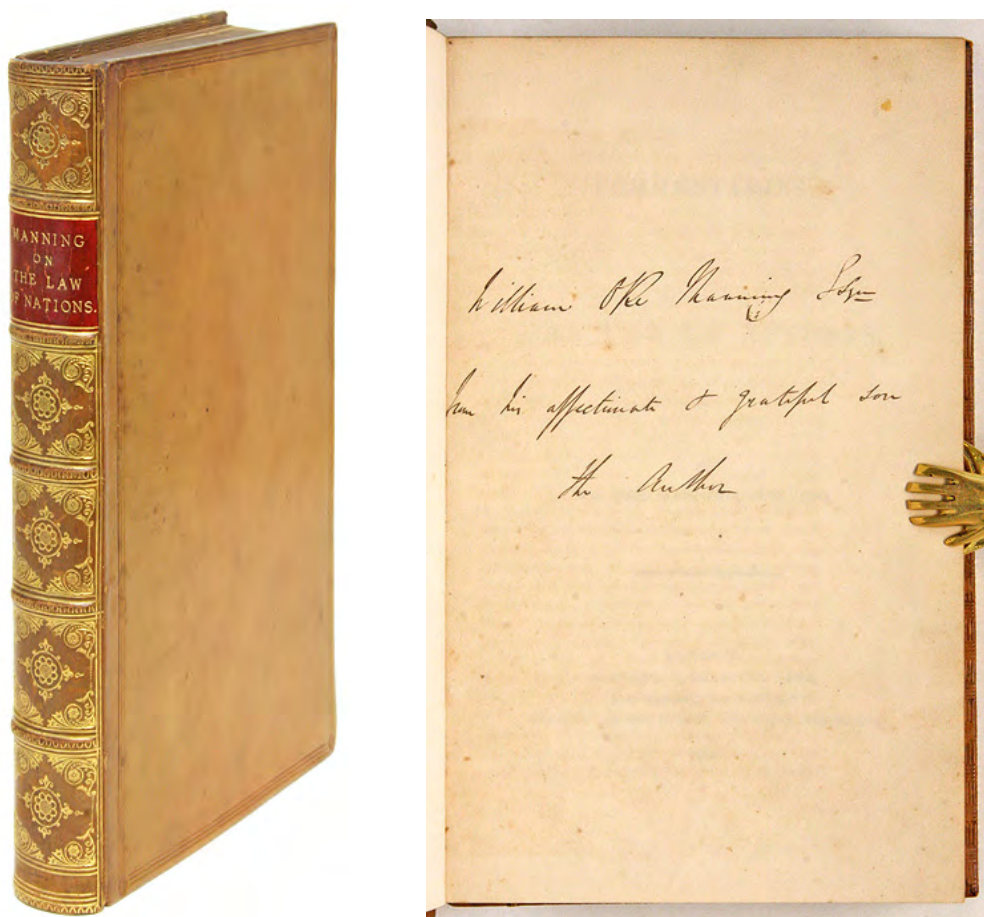 MANNING
ON
THE LAW
OF NATIONS.
William Oke Manning Esqre
from his affectionate & grateful son
the Author